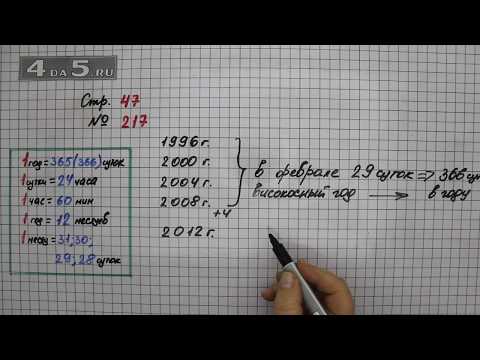 4DA5.RU
Стр. 47
№ 217
1 год = 365(366) суток
1 сутки = 24 часа
1 час = 60 мин
1 год = 12 месяцев
1 месяц = 31; 30;
29; 28 суток
1996 г.
2000 г.
2004 г.
2008 г.
+4
2012 г.
В феврале 29 суток ⇒ 366 су
високосный год → в году